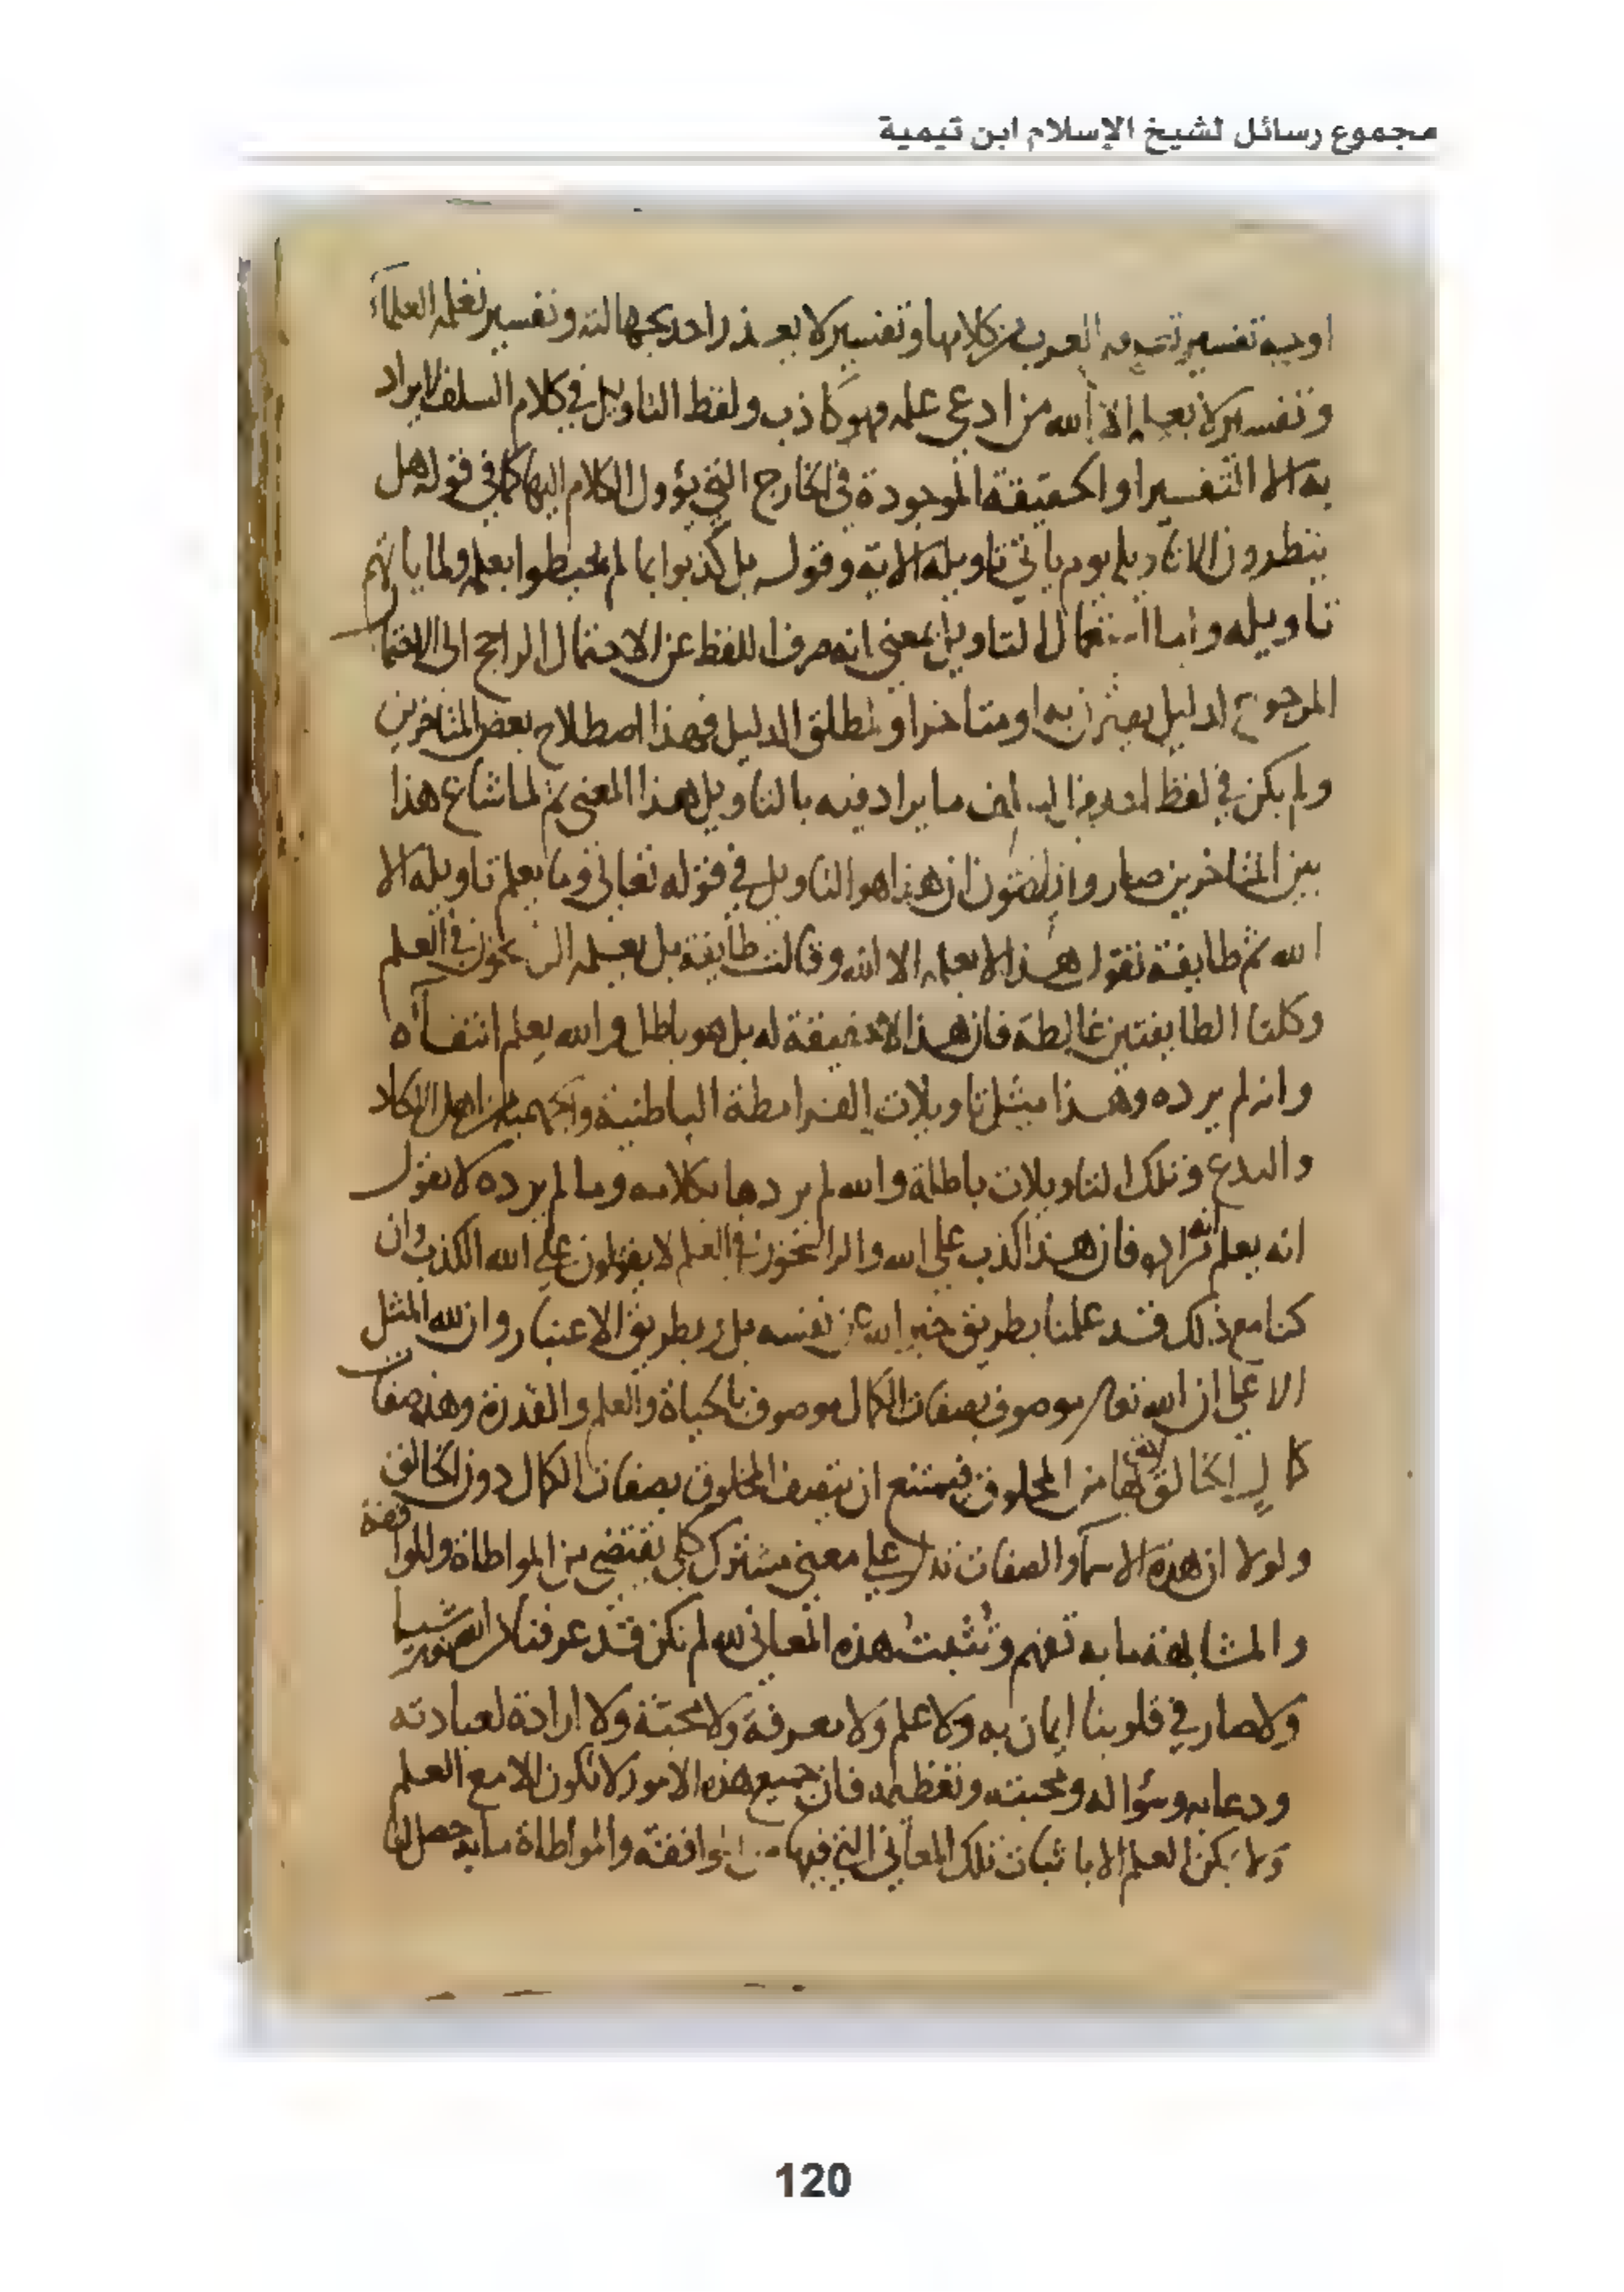 مجموع رسائل لشيخ الإسلام ابن تيمية
اوجه تفسير تعرفه العرب من كلامها وتفسير لا يعذر احد بجهالته وتفسير تعلمه العلماء
وتفسير لا يعلمه الا الله من ادعى علمه فهو كاذب ولفظ التاويل في كلام السلف لا يراد
به الا التفسير او الحقيقة الموجودة في الخارج التي يؤول الكلام اليها كما في قوله هل
ينظرون الا تاويله يوم ياتي تاويله الاية وقوله بل كذبوا بما لم يحيطوا بعلمه ولما ياتهم
تاويله واما استعمال التاويل بمعنى انه صرف اللفظ عن الاحتمال الراجح الى الاحتمال
المرجوح لدليل يقترن به او متاخر او لمطلق الدليل فهذا اصطلاح بعض المتاخرين
ولم يكن في لفظ احد من السلف ما يراد فيه بالتاويل هذا المعنى ثم لما شاع هذا
بين المتاخرين صاروا يظنون ان هذا هو التاويل في قوله تعالى وما يعلم تاويله الا
الله ثم طايفة تقول هذا لا يعلمه الا الله وقالت طايفة بل يعلمه الراسخون في العلم
وكلتا الطايفتين غالطة فان هذا لا حقيقة له بل هو باطل والله يعلم انتفاه
وانه لم يرده وهذا مثل تاويلات القرامطة الباطنية والجهمية من اهل الالحاد
والبدع وتلك التاويلات باطلة والله لم يردها بكلامه وما لم يرده لا نقول
انه يعلم انه مراده فان هذا كذب على الله والراسخون في العلم لا يقولون على الله الكذب وان
كنا مع ذلك قد علمنا بطريق خبر الله عن نفسه بل وبطريق الاعتبار وان لله المثل
الاعلى ان الله تعالى موصوف بصفات الكمال موصوف بالحياة والعلم والقدرة وهذه صفات
كمال الخالق احق بها من المخلوق فيمتنع ان يتصف المخلوق بصفات الكمال دون الخالق
ولولا ان هذه الاسما والصفات تدل على معنى مشترك كلي يقتضي من المواطاة والموافقة
والمشابهة ما به تفهم وتثبت هذه المعاني لله لم نكن قد عرفنا عن الله شيا
ولا صار في قلوبنا ايمان به ولا علم ولا معرفة ولا محبة ولا ارادة لعبادته
ودعايه وسؤاله ومحبته وتعظيمه فان جميع هذه الامور لا تكون الا مع العلم
ولا يمكن العلم الا باثبات تلك المعاني التي فيها من الموافقة والمواطاة ما به حصل لنا
120